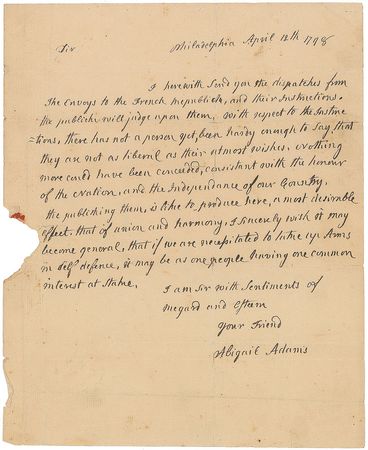 Philadelphia April 12th 1798
Sir
I herewith Send you the dispatches from
the Envoys to the French Republick, and their Instructions.
the publick will judge upon them, with respect to the Instruc
=tions, there has not a person yet, been hardy enough to Say, that
they are not as liberal as their utmost wishes. Nothing
more could have been conceded, consistant with the honour
of the Nation, and the Independance of our Country,
the publishing them, is like to produce here, a most desirable
effect, that of union and harmony, I Sincerely wish it may
become general, that if we are necessitated to take up Arms
in Self defence, it may be as one people having one common
interest at Stake,
I am Sir with Sentiments of
Regard and Esteem
Your Friend
Abigail Adams